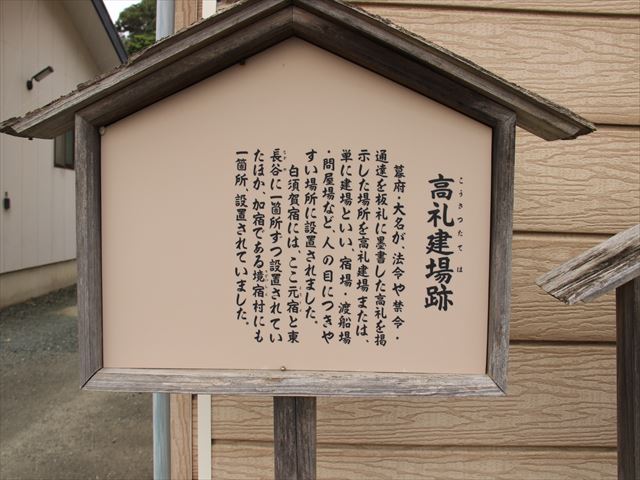 高札建場跡
こうさつたてば
幕府・大名が、法令や禁令・
通達を板札に墨書した高札を掲
示した場所を高札建場または、
単に建場といい、宿場・渡船場
・問屋場など、人の目につきや
すい場所に設置されました。
白須賀宿には、ここ元宿と東
長谷に一箇所ずつ設置されてい
たほか、加宿である境宿村にも
一箇所、設置されていました。